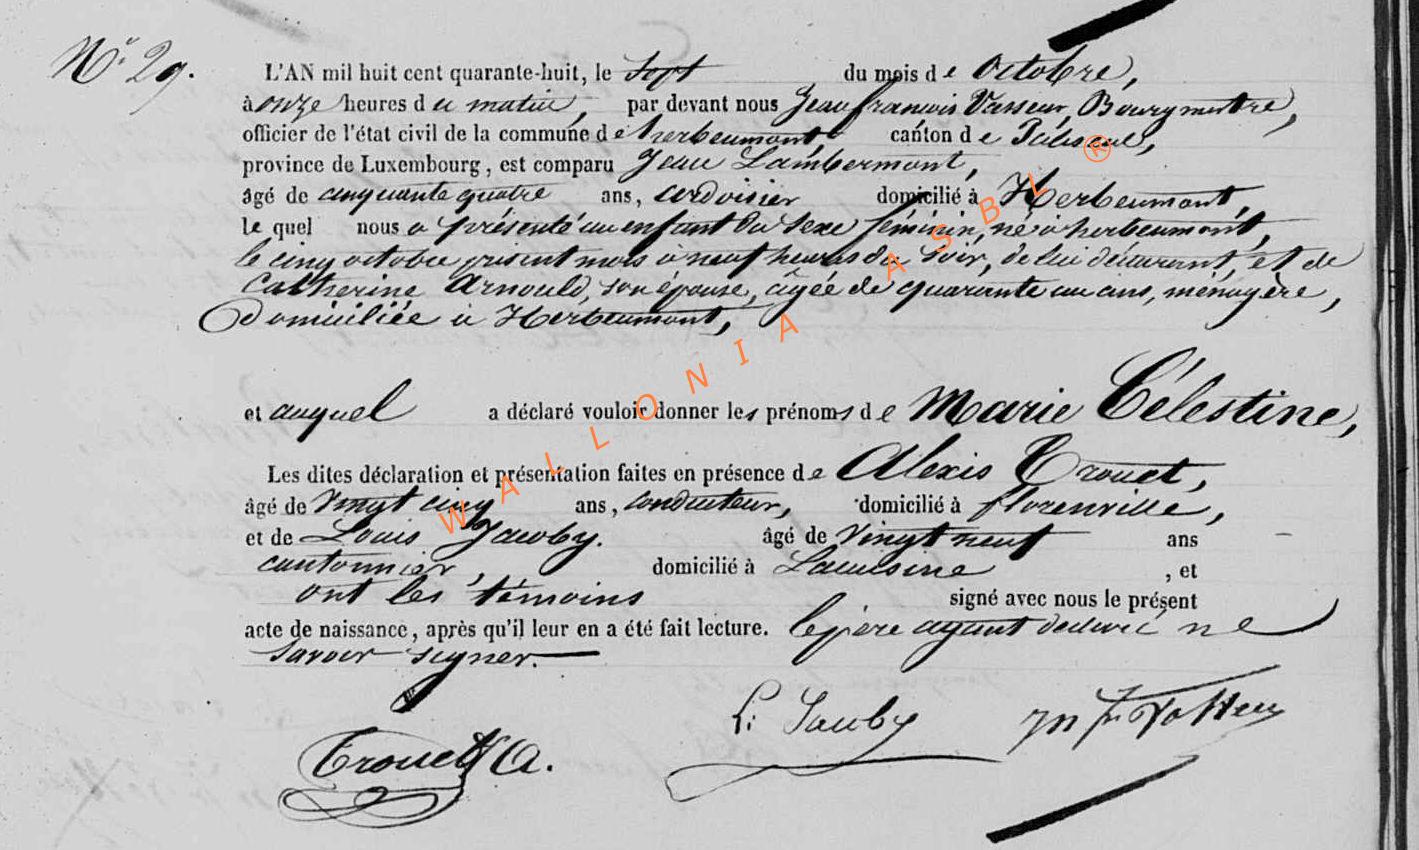 N° 29.
L'AN mil huit cent quarante-huit, le sept du mois de Octobre,
à onze heures du matin, par devant nous Jean françois Vasseur, Bourgmestre,
officier de l'état civil de la commune de herbeumont, canton de Paliseul,
province de Luxembourg, est comparu Jean Lambermont,
âgé de cinquante quatre ans, ardoisier domicilié à Herbeumont,
le quel nous a présenté un enfant du sexe féminin, né à herbeumont,
le cinq octobre présent mois à neuf heures du soir, de lui déclarant, et de
Catherine Arnould, son épouse, âgée de quarante un ans, ménagère,
Domiciliée à Herbeumont,
et auquel a déclaré vouloir donner les prénoms de Marie Célestine,
Les dites déclaration et présentation faites en présence de Alexis Trouet,
âgé de vingt cinq ans, conducteur, domicilié à florenville,
et de Louis Jacoby. âgé de vingt neuf ans
cantonnier, domicilié à Lacuisine, et
ont les témoins signé avec nous le présent
acte de naissance, après qu'il leur en a été fait lecture. le père ayant déclaré ne
savoir signer.
Trouet A. L. Jacoby
WALLONIA ASBL ®